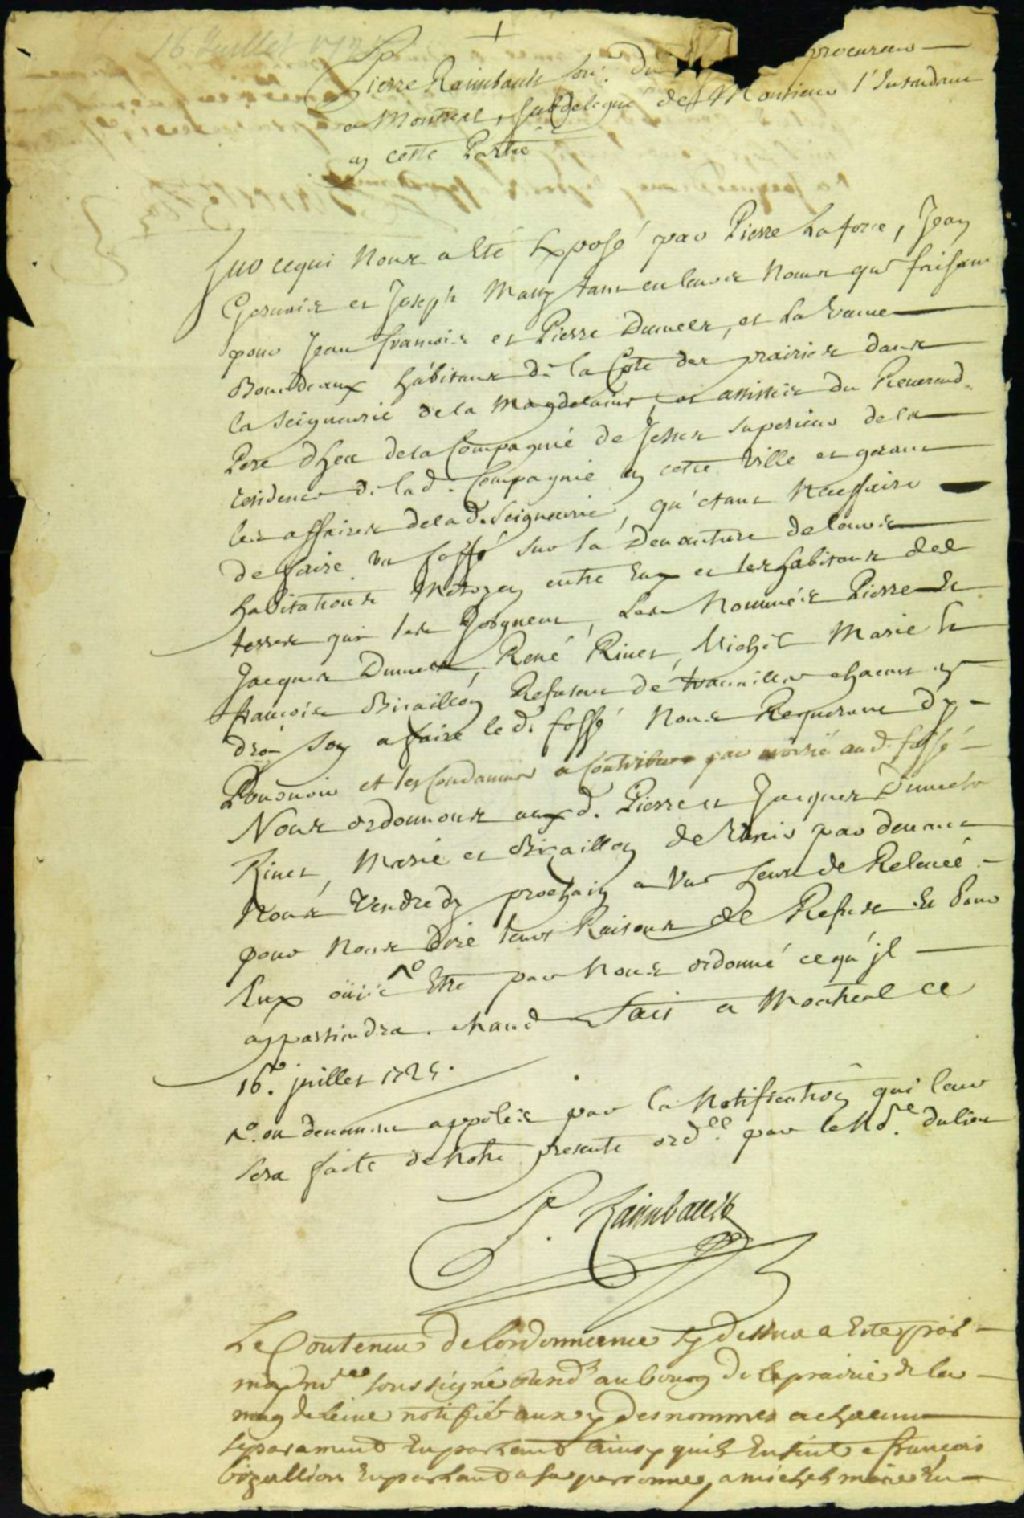 16 Juillet 1725
Pierre Raimbault Con.er du procureur
a Montreal, subdelegué de Monsieur l'Intendant
en cette Partie
Sur cequi Nous a Eté Exposé par Pierre Laforce, Jean
Gervais et Joseph Many tant en leurs Noms que faisant
pour Jean francois et Pierre Dumets, et La Veuve
Bourdeaux habitans de la Cote des prairies dans
la Seigneurie de la Magdelaine, et assistés du Reverend
Pere dheu dela Compagnie de Jesus superieur de la
residence de lad. Compagnie en cette ville et gerant
les affaires delad. Seigneurie, qu'etant Necessaire
de faire un fossé sur la Devanture de leurs
habitations Mitoyen entre Eux et les habitans des
terres qui les Joignent, Les Nommés Pierre et
Jacques Dumets, René Rivet, Michel Marie et
francois Bizaillon Refusent de travailler chacun en
droit soy a faire led. fossé Nous Requerant d'y
Pourvoir et les Condamner a Contribuer par moitié aud. fossé
Nous ordonnons auxd. Pierre et Jacques Dumets
Rivet, Marie et Bizaillon de Venir par devant
Nous Vendredy prochain a Une heure de Relevée
pour Nous dire leurs Raisons de Refus Et Pour
Eux oüis Etre par Nous ordonné ce qu'il
appartiendra. Mand Fait a Montreal ce
16e. juillet 1725.
ou deument appelés par la Notification qui leur
sera faite de Notre presente ord.ce par le No.re du lieu
P. Raimbault
Le Contenu de lordonnance cy dessus a Esté par
moy soussigné au bourg de laprairie de la
magdeleine notifié aux y desnommes a chacun
separament En parlant ainsy quil Ensuit a francois
bizallion En parlant a sa personne, a michel marie En